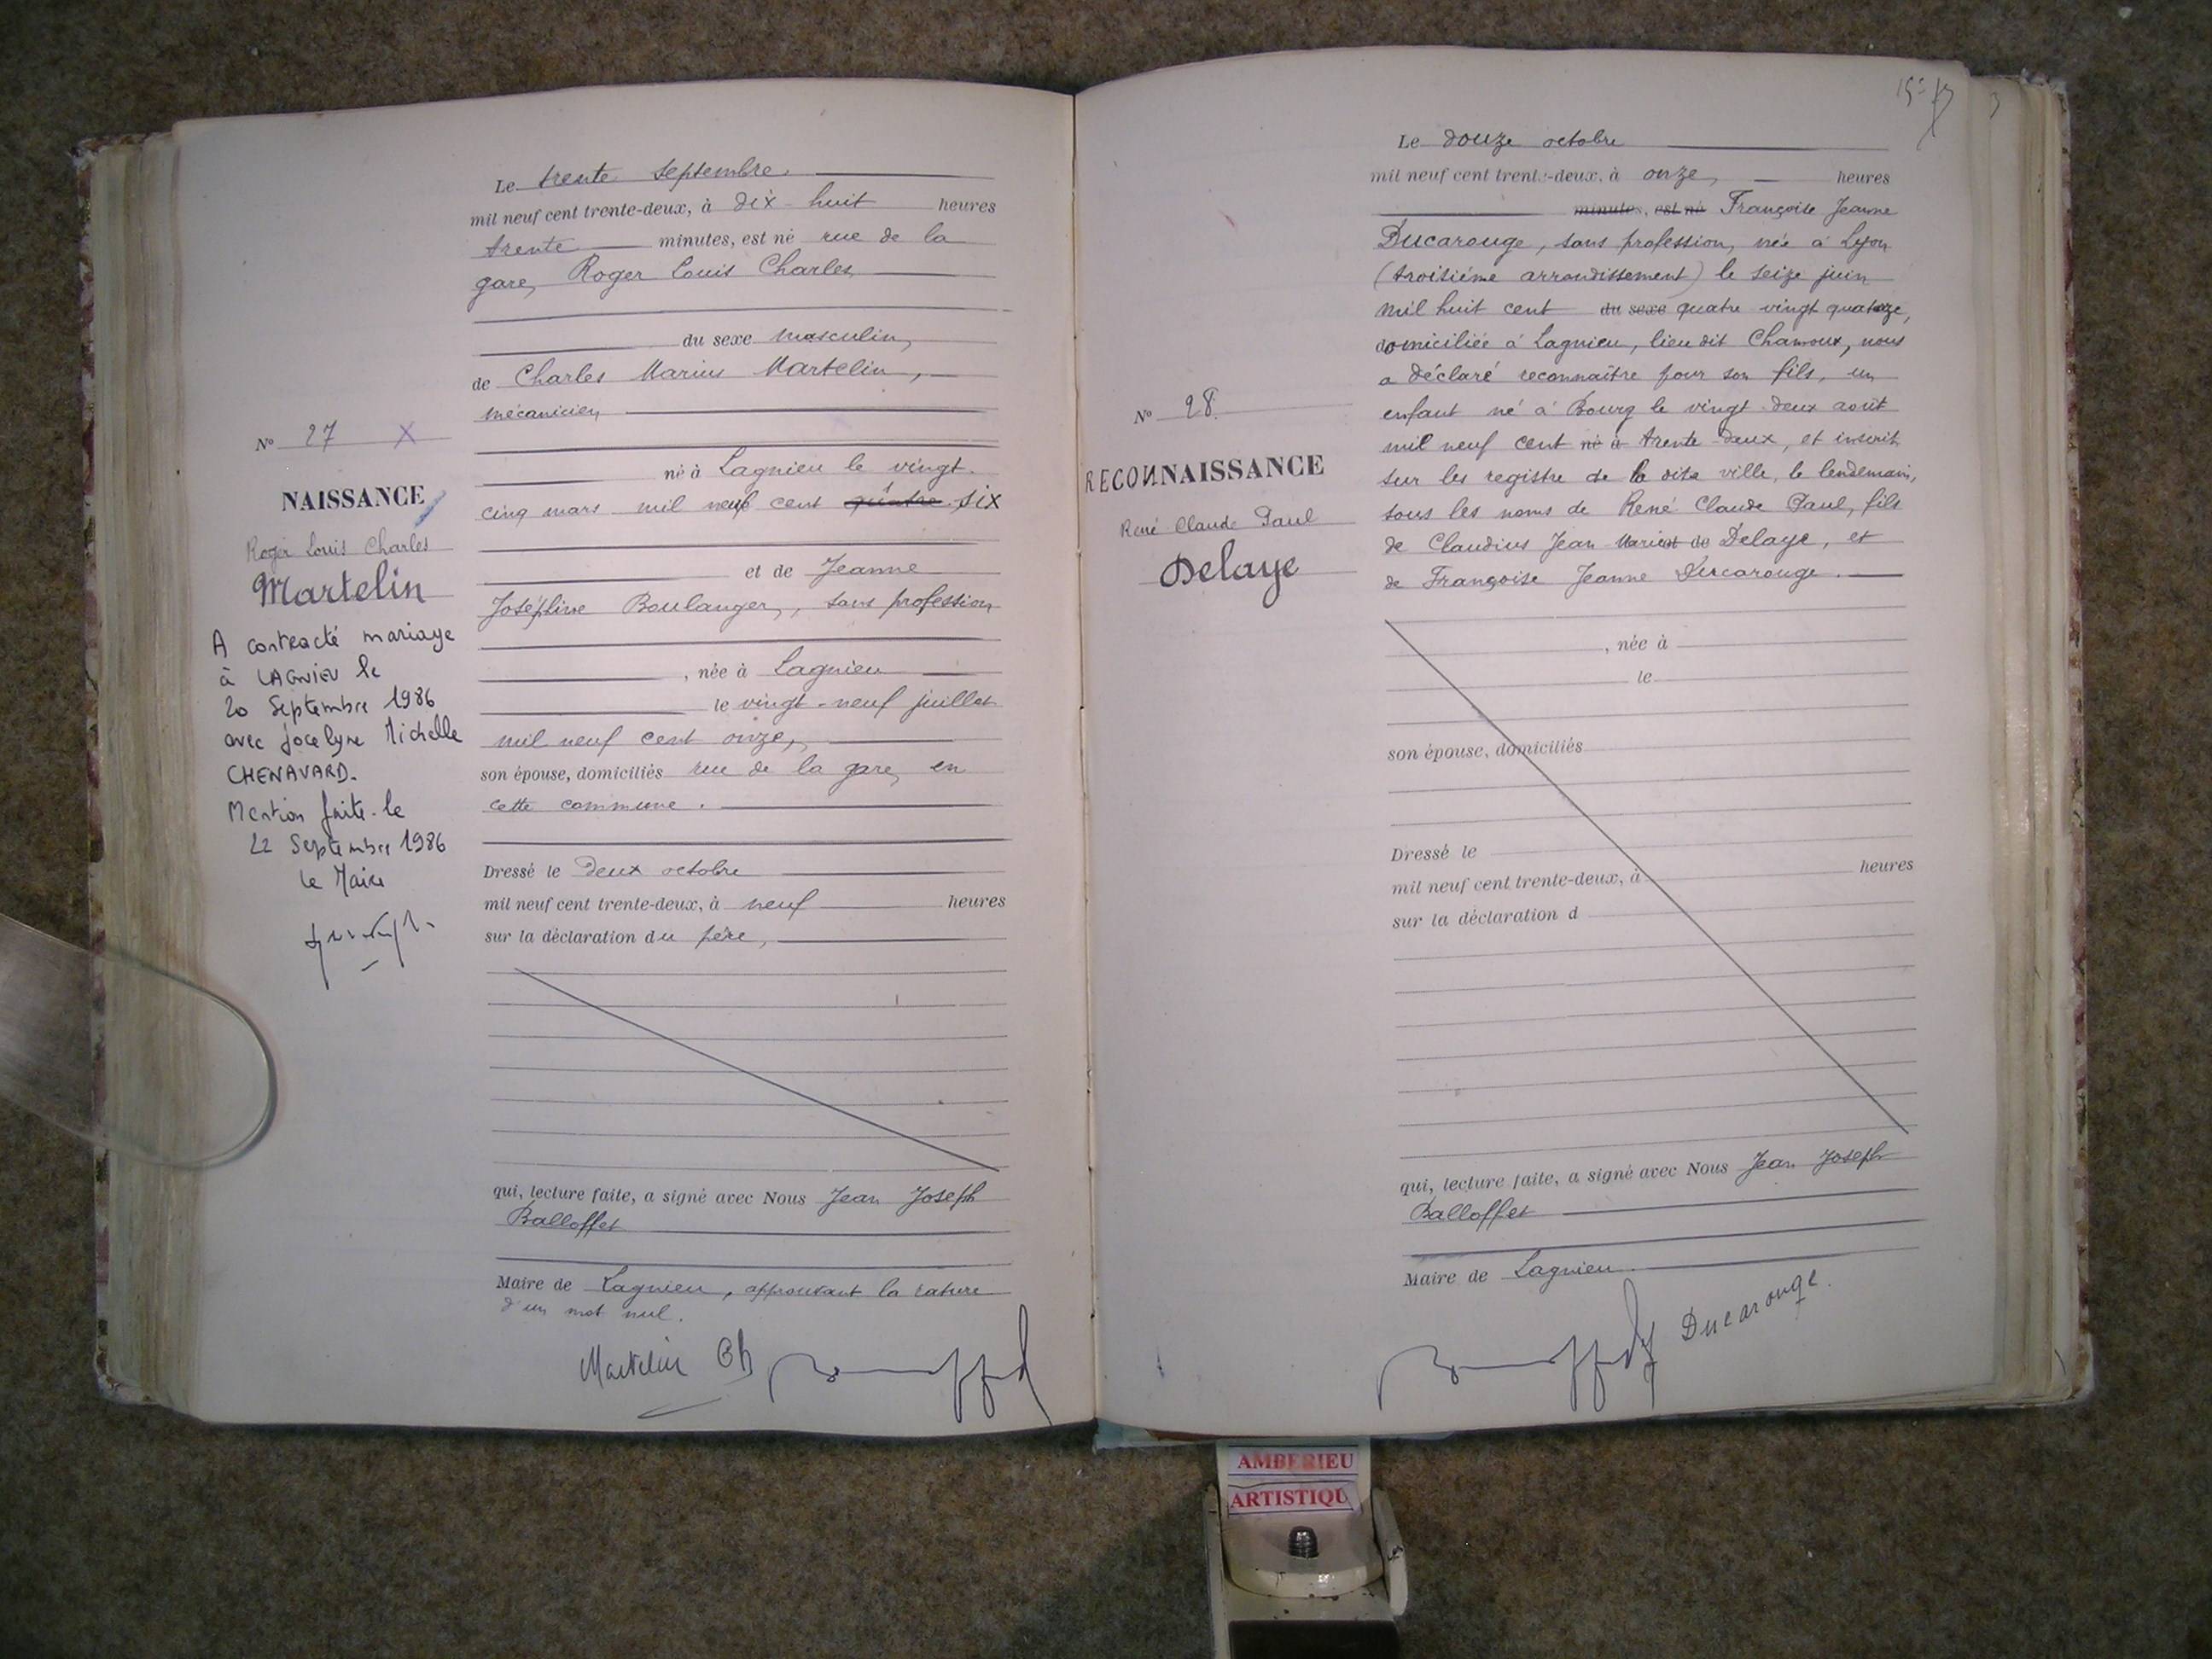 Le trente septembre,
mil neuf cent trente-deux, à dix huit heures
trente minutes, est né rue de la
gare, Roger Louis Charles,
du sexe masculin,
de Charles Marius Martelin,
mécanicien,
né à Lagnieu le vingt
cinq mars mil neuf cent quatre six
et de Jeanne
Joséphine Boulanger, sans profession
, née à Lagnieu
le vingt-neuf juillet
mil neuf cent onze,
son épouse, domiciliés rue de la gare, en
cette commune.
Dressé le deux octobre
mil neuf cent trente-deux, à neuf heures
sur la déclaration du père,
qui, lecture faite, a signé avec Nous Jean Joseph
Balloffet
Maire de Lagnieu, approuvant la rature
d'un mot nul.
Martelin Ch
No 27 X
NAISSANCE
Roger Louis Charles
Martelin
A contracté mariage
à LAGNIEU le
20 Septembre 1986
avec Jocelyne Michelle
CHENAVARD.
Mention faite le
22 Septembre 1986
le Maire
Le douze octobre
mil neuf cent trente-deux, à onze, heures
minutes, est né Françoise Jeanne
Ducarouge, sans profession, née à Lyon
(troisième arrondissement) le seize juin
mil huit cent du sexe quatre vingt quatorze,
domiciliée à Lagnieu, lieu dit Chamoux, nous
a déclaré reconnaître pour son fils, un
enfant né à Bourg le vingt-deux août
mil neuf cent né à trente deux, et inscrit
sur les registre de la dite ville, le lendemain,
sous les noms de René Claude Paul, fils
de Claudius Jean Marie et de Delaye, et
de Françoise Jeanne Ducarouge.
, née à
le
son épouse, domiciliés
Dressé le
mil neuf cent trente-deux, à heures
sur la déclaration d
qui, lecture faite, a signé avec Nous Jean Joseph
Balloffet
Maire de Lagnieu.
Ducarouge.
No 28.
RECONNAISSANCE
René Claude Paul
Delaye
AMBERIEU
ARTISTIQU